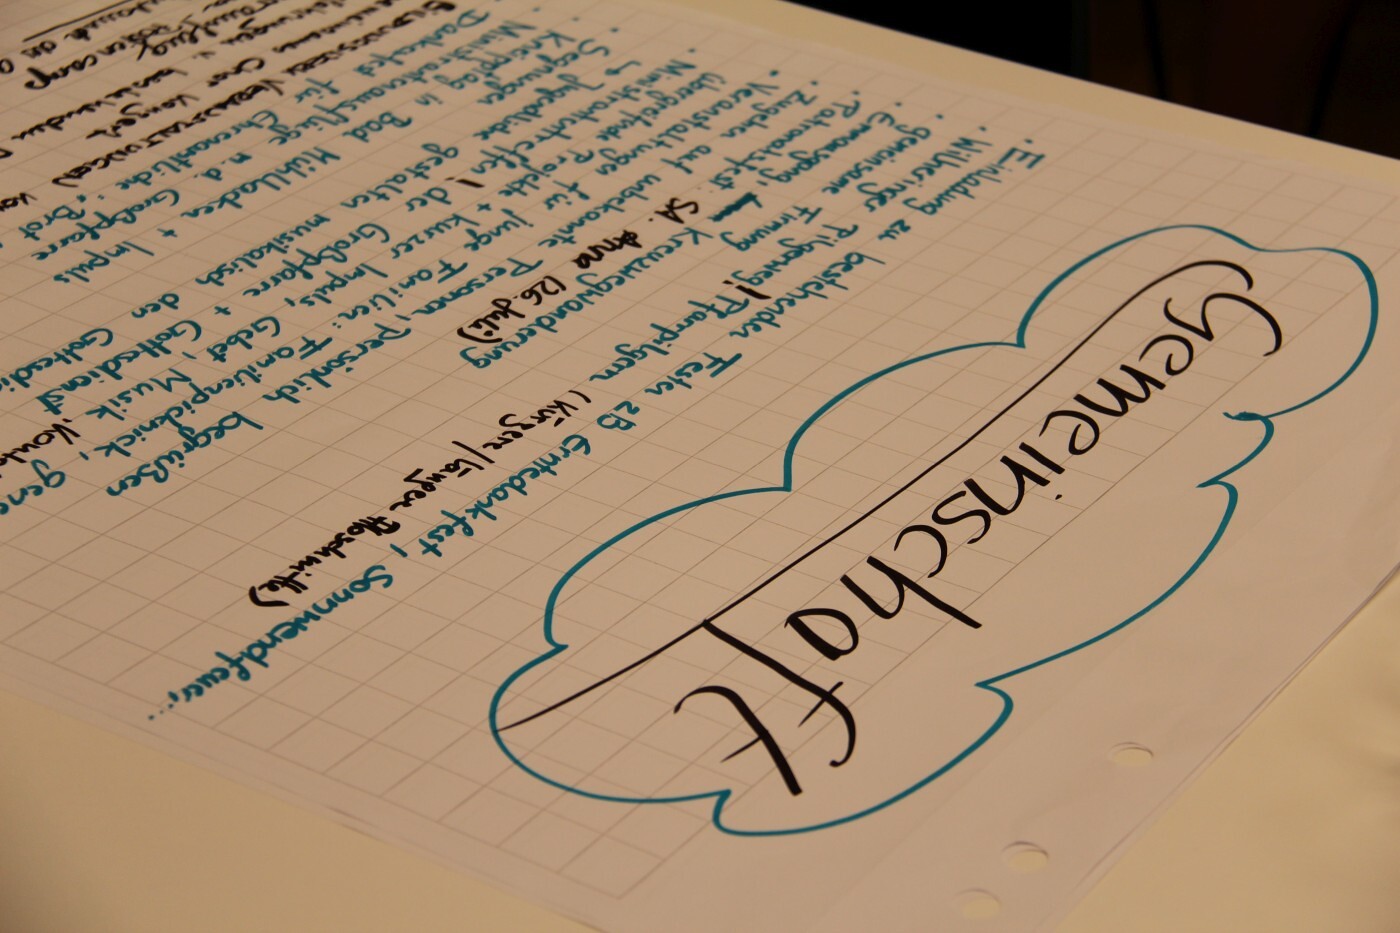 Gemeinschaft
• Einladung zu bestehenden Festen zB Erntedankfest, Sonnwendfeuer, ...
• Wilheringer Pilgerweg! Pfarrpilgern (kürzere/länger Abschnitte)
• gemeinsame Firmung
• Emmausgang, Kreuzwegwanderung
• Patronatsfest: SA. Anna (26. Juli)
• Zugehen auf unbekannte Personen, persönlich begrüßen
• Veranstaltungen für junge Familien: Familienpicknick,
übergreifende Projekte + kurzer Impuls, Gebet, Musik,
• Ministrantentreffen! der Großpfarre + Gottesdienst
↳ Jugendliche gestalten musikalisch den
• Segnungen
• Kneipptag in Bad Mühllacken + Impuls
• Ministrantenausflüge n. d. Großpfarre
• Dankefest für Ehrenamtliche; Brot
Veranstaltungen
Chor